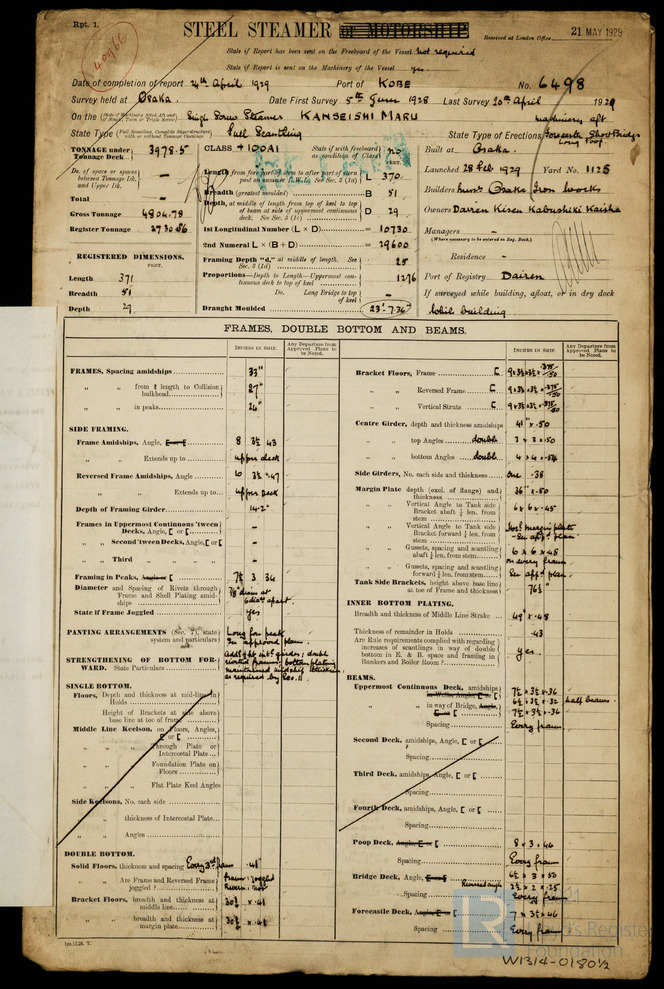 Rpt. 1.
STEEL STEAMER or MOTORSHIP
Received at London Office 21 MAY 1929
40966
State if Report has been sent on the Freeboard of the Vessel not required
State if Report is sent on the Machinery of the Vessel yes
Date of completion of report 4th April 1929 Port of KOBE No. 6498
Survey held at Osaka. Date First Survey 5th June 1928 Last Survey 20th April 1929
On the Single Screw Steamer KANSEISHI MARU machinery aft
State Type Full Scantling State Type of Erections Forecastle Short Bridge Long Poop.
TONNAGE under Tonnage Deck 3978.5
No. of space or spaces between Tonnage Dk. and Upper Dk. -
Total -
Gross Tonnage 4804.79
Register Tonnage 2730.56
REGISTERED DIMENSIONS.
FEET.
Length 371
Breadth 51
Depth 29
CLASS +100A1 State if with freeboard as condition of Class no
FEET.
Length from fore part of stem to after part of stern post on summer L.W.L. See Sec. 3 (1a) L 370
Breadth (greatest moulded) B 51
Depth, at middle of length from top of keel to top of beam at side of uppermost continuous deck. D 29
1st Longitudinal Number (L × D) = 10730
2nd Numeral L × (B + D) = 29600
Framing Depth "d," at middle of length. See Sec. 3 (1d) 25
Proportions—Depth to Length—Uppermost continuous deck to top of keel 12.76
Do. Long Bridge to top of keel -
Draught Moulded 23'-7.36"
Built at Osaka.
Launched 28 Feb 1929 Yard No. 1125
Builders Osaka Iron Works
Owners Dairen Kisen Kabushiki Kaisha
Managers -
(Where necessary to be entered in Reg. Book.)
Residence -
Port of Registry Dairen
If surveyed while building, afloat, or in dry dock
while building
FRAMES, DOUBLE BOTTOM AND BEAMS.
INCHES IN SHIP.
Any Departure from Approved Plans to be Noted.
FRAMES, Spacing amidships 33"
" " from ⅕ length to Collision bulkhead 27"
" " in peaks 24"
SIDE FRAMING.
Frame Amidships, Angle, 8 3½ .43
" " Extends up to upper deck
Reversed Frame Amidships, Angle 6 3½ .47
" " Extends up to upper deck
Depth of Framing Girder 14.2"
Frames in Uppermost Continuous 'tween Decks, Angle, [ or [ -
" " Second 'tween Decks, Angle, [ or [ -
" " Third " " " " -
Framing in Peaks, Angle or [ 7½ 3 .34
Diameter and Spacing of Rivets through Frame and Shell Plating amidships 7/8" diam at 6 diam apart
State if Frame Joggled yes
PANTING ARRANGEMENTS (Sec. 7), state system and particulars Long fore peak As approved plan.
STRENGTHENING OF BOTTOM FORWARD. State Particulars
as required by Sec. 11
SINGLE BOTTOM.
Floors, Depth and thickness at mid-line in Holds
Height of Brackets at side above base line at toe of frame
Middle Line Keelson, on Floors, Angles, [ or [
" " Through Plate or Intercostal Plate
" " Foundation Plate on Floors
" " Flat Plate Keel Angles
Side Keelsons, No. each side
" " thickness of Intercostal Plate
" " Angles
DOUBLE BOTTOM.
Solid Floors, thickness and spacing Every 3rd frame .41"
" " Are Frame and Reversed Frame joggled? Frame: joggled Revers: not
Bracket Floors, breadth and thickness at middle line 30½ x .41
" " breadth and thickness at margin plate 30½ x .41
Bracket Floors, Frame [ 9 x 3½ x 3½ x .375/.50
" " Reversed Frame [ 9 x 3½ x 3½ x .375/.50
" " Vertical Struts [ 9 x 3½ x 3½ x .375/.50
Centre Girder, depth and thickness amidships 41" x .50
" " top Angles double 3 x 3 x .50
" " bottom Angles double 4 x 4 x .54
Side Girders, No. each side and thickness one .38
Margin Plate depth (excl. of flange) and thickness 36" x .50
" " Vertical Angle to Tank side Bracket abaft ¼ len. from stem 6 x 6 x .45
" " Vertical Angle to Tank side Bracket forward ¼ len. from stem margin plate See app'd plan.
" " Gussets, spacing and scantling abaft ¼ len. from stem 6 x 6 x .45 on every frame
" " Gussets, spacing and scantling forward ¼ len. from stem See app'd plan.
Tank Side Brackets, height above base line at toe of Frame and thickness 76½"
INNER BOTTOM PLATING.
Breadth and thickness of Middle Line Strake 49" x .48
Thickness of remainder in Holds .43
Are Rule requirements complied with regarding increases of scantlings in way of double bottom in E. & B. space and framing in Bunkers and Boiler Room? yes
BEAMS.
Uppermost Continuous Deck, amidships 7½ x 3½ x .36
" " in way of Bridge, Angle, 7½ x 3½ x .36 half beams
Spacing Every frame
Second Deck, amidships, Angle, [ or [
Spacing
Third Deck, amidships, Angle, [ or [
Spacing
Fourth Deck, amidships, Angle, [ or [
Spacing
Poop Deck, 8 x 3 x .46
Spacing Every frame
Bridge Deck, Angle, 6½ x 3 x .50
Spacing Reversed angle Every frame
Forecastle Deck, Angle, [ or [ 7 x 3½ x .46
Spacing Every frame
1m.11.28. T.
LR
Lloyd's Register Foundation
W1314-0180½